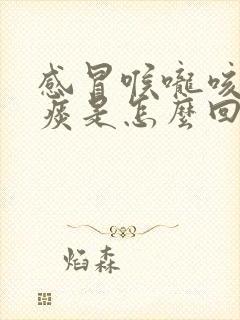 感冒喉嚨咳
痰是怎麼回
焰森